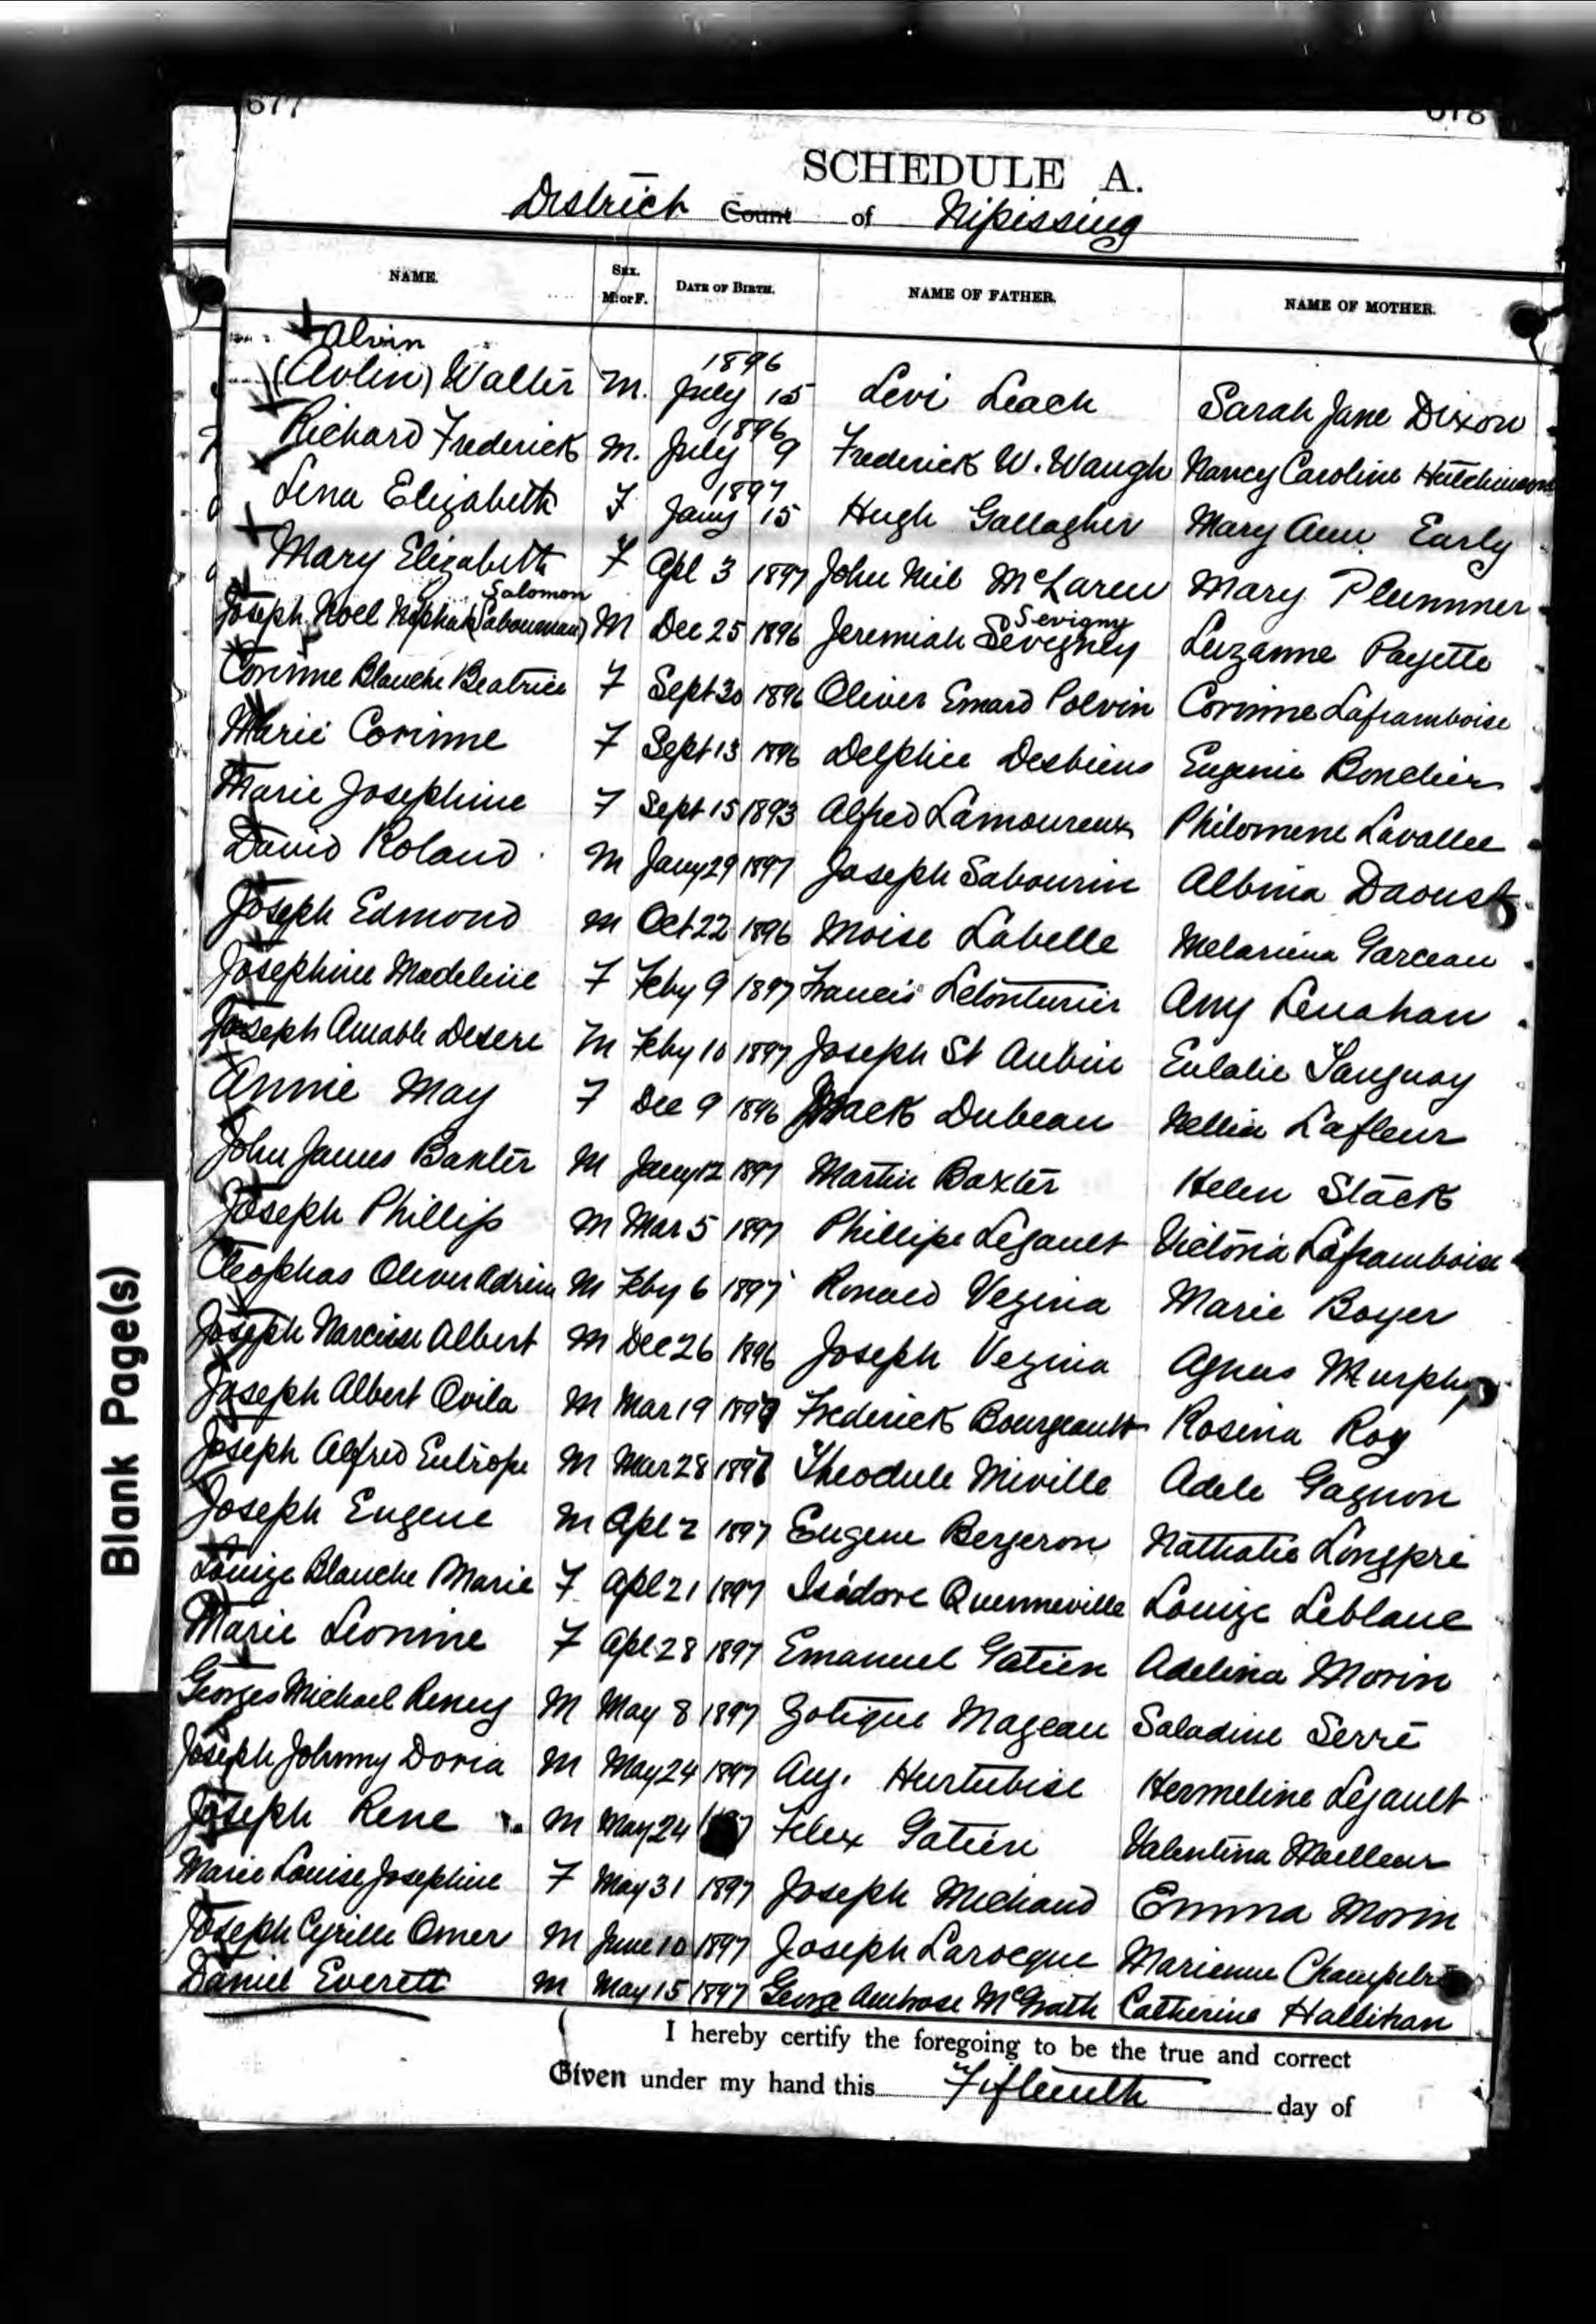 677 678
SCHEDULE A.
District Count of Nipissing
NAME. SEX. M. or F. DATE OF BIRTH. NAME OF FATHER. NAME OF MOTHER.
Alvin
(Avlin) Walter M. July 15 1896 Levi Leach Sarah Jane Dixon
Richard Frederick M. July 9 1896 Frederick W. Waugh Nancy Caroline Hutchinson
Lena Elizabeth F Jany 15 1897 Hugh Gallagher Mary Ann Early
Mary Elizabeth F Apl 3 1897 John Neil McLaren Mary Plummer
Salomon Sevigny
Joseph Noel M Dec 25 1896 Jeremiah Sevigney Luzanne Payette
Corinne Blanche Beatrice F Sept 30 1896 Oliver Emard Polvin Corinne Laframboise
Marie Corinne F Sept 13 1896 Delphice Desbiens Eugenie
Marie Josephine F Sept 15 1893 Alfred Lamoureux Philomene Lavallee
David Roland M Jany 29 1897 Joseph Sabourin Albina Daoust
Joseph Edmond M Oct 22 1896 Moise Labelle Garceau
Josephine Madeline F Feby 9 1897 Francis Letonturier Amy Lenahan
Joseph Amable Desere M Feby 10 1897 Joseph St Aubin Eulalie Tanguay
Annie May F Dec 9 1896 Mack Dubeau Nellie Lafleur
John James Baxter M Jany 12 1897 Martin Baxter Helen Slack
Joseph Phillip M Mar 5 1897 Phillipe Legault Victoria Laframboise
Cleophas Oliver Adrien M Feby 6 1897 Ronald Vezina Marie Boyer
Joseph Narcisse Albert M Dec 26 1896 Joseph Vezina Agnes Murphy
Joseph Albert Ovila M Mar 19 1897 Frederick Bourgeault Rosina Roy
Joseph Alfred Eutrope M Mar 28 1897 Theodule Miville Adele Gagnon
Joseph Eugene M Apl 2 1897 Eugene Bergeron Nathalie Longpré
Louize Blanche Marie F Apl 21 1897 Isidore Quenneville Louize Leblanc
Marie Leonine F Apl 28 1897 Emanuel Gatien Adelina Morin
Georges Michael Remey M May 8 1897 Zotique Mageau Saladine Serré
Joseph Johnny Doria M May 24 1897 Aug. Hurtubise Hermeline Legault
Joseph Rene M May 24 Felex Gatien Valentina
Marie Louise Josephine F May 31 1897 Joseph Michaud Emma Morin
Joseph Cyrille Omer M June 10 1897 Joseph Larocque
Daniel Everett M May 15 1897 George Ambrose McGrath Catherine Hallihan
I hereby certify the foregoing to be the true and correct
Given under my hand this Fifteenth day of
Blank Page(s)